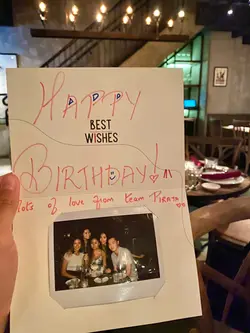 HAPPY
BEST
WISHES
BIRTHDAY!
lots of love from team PIRATA